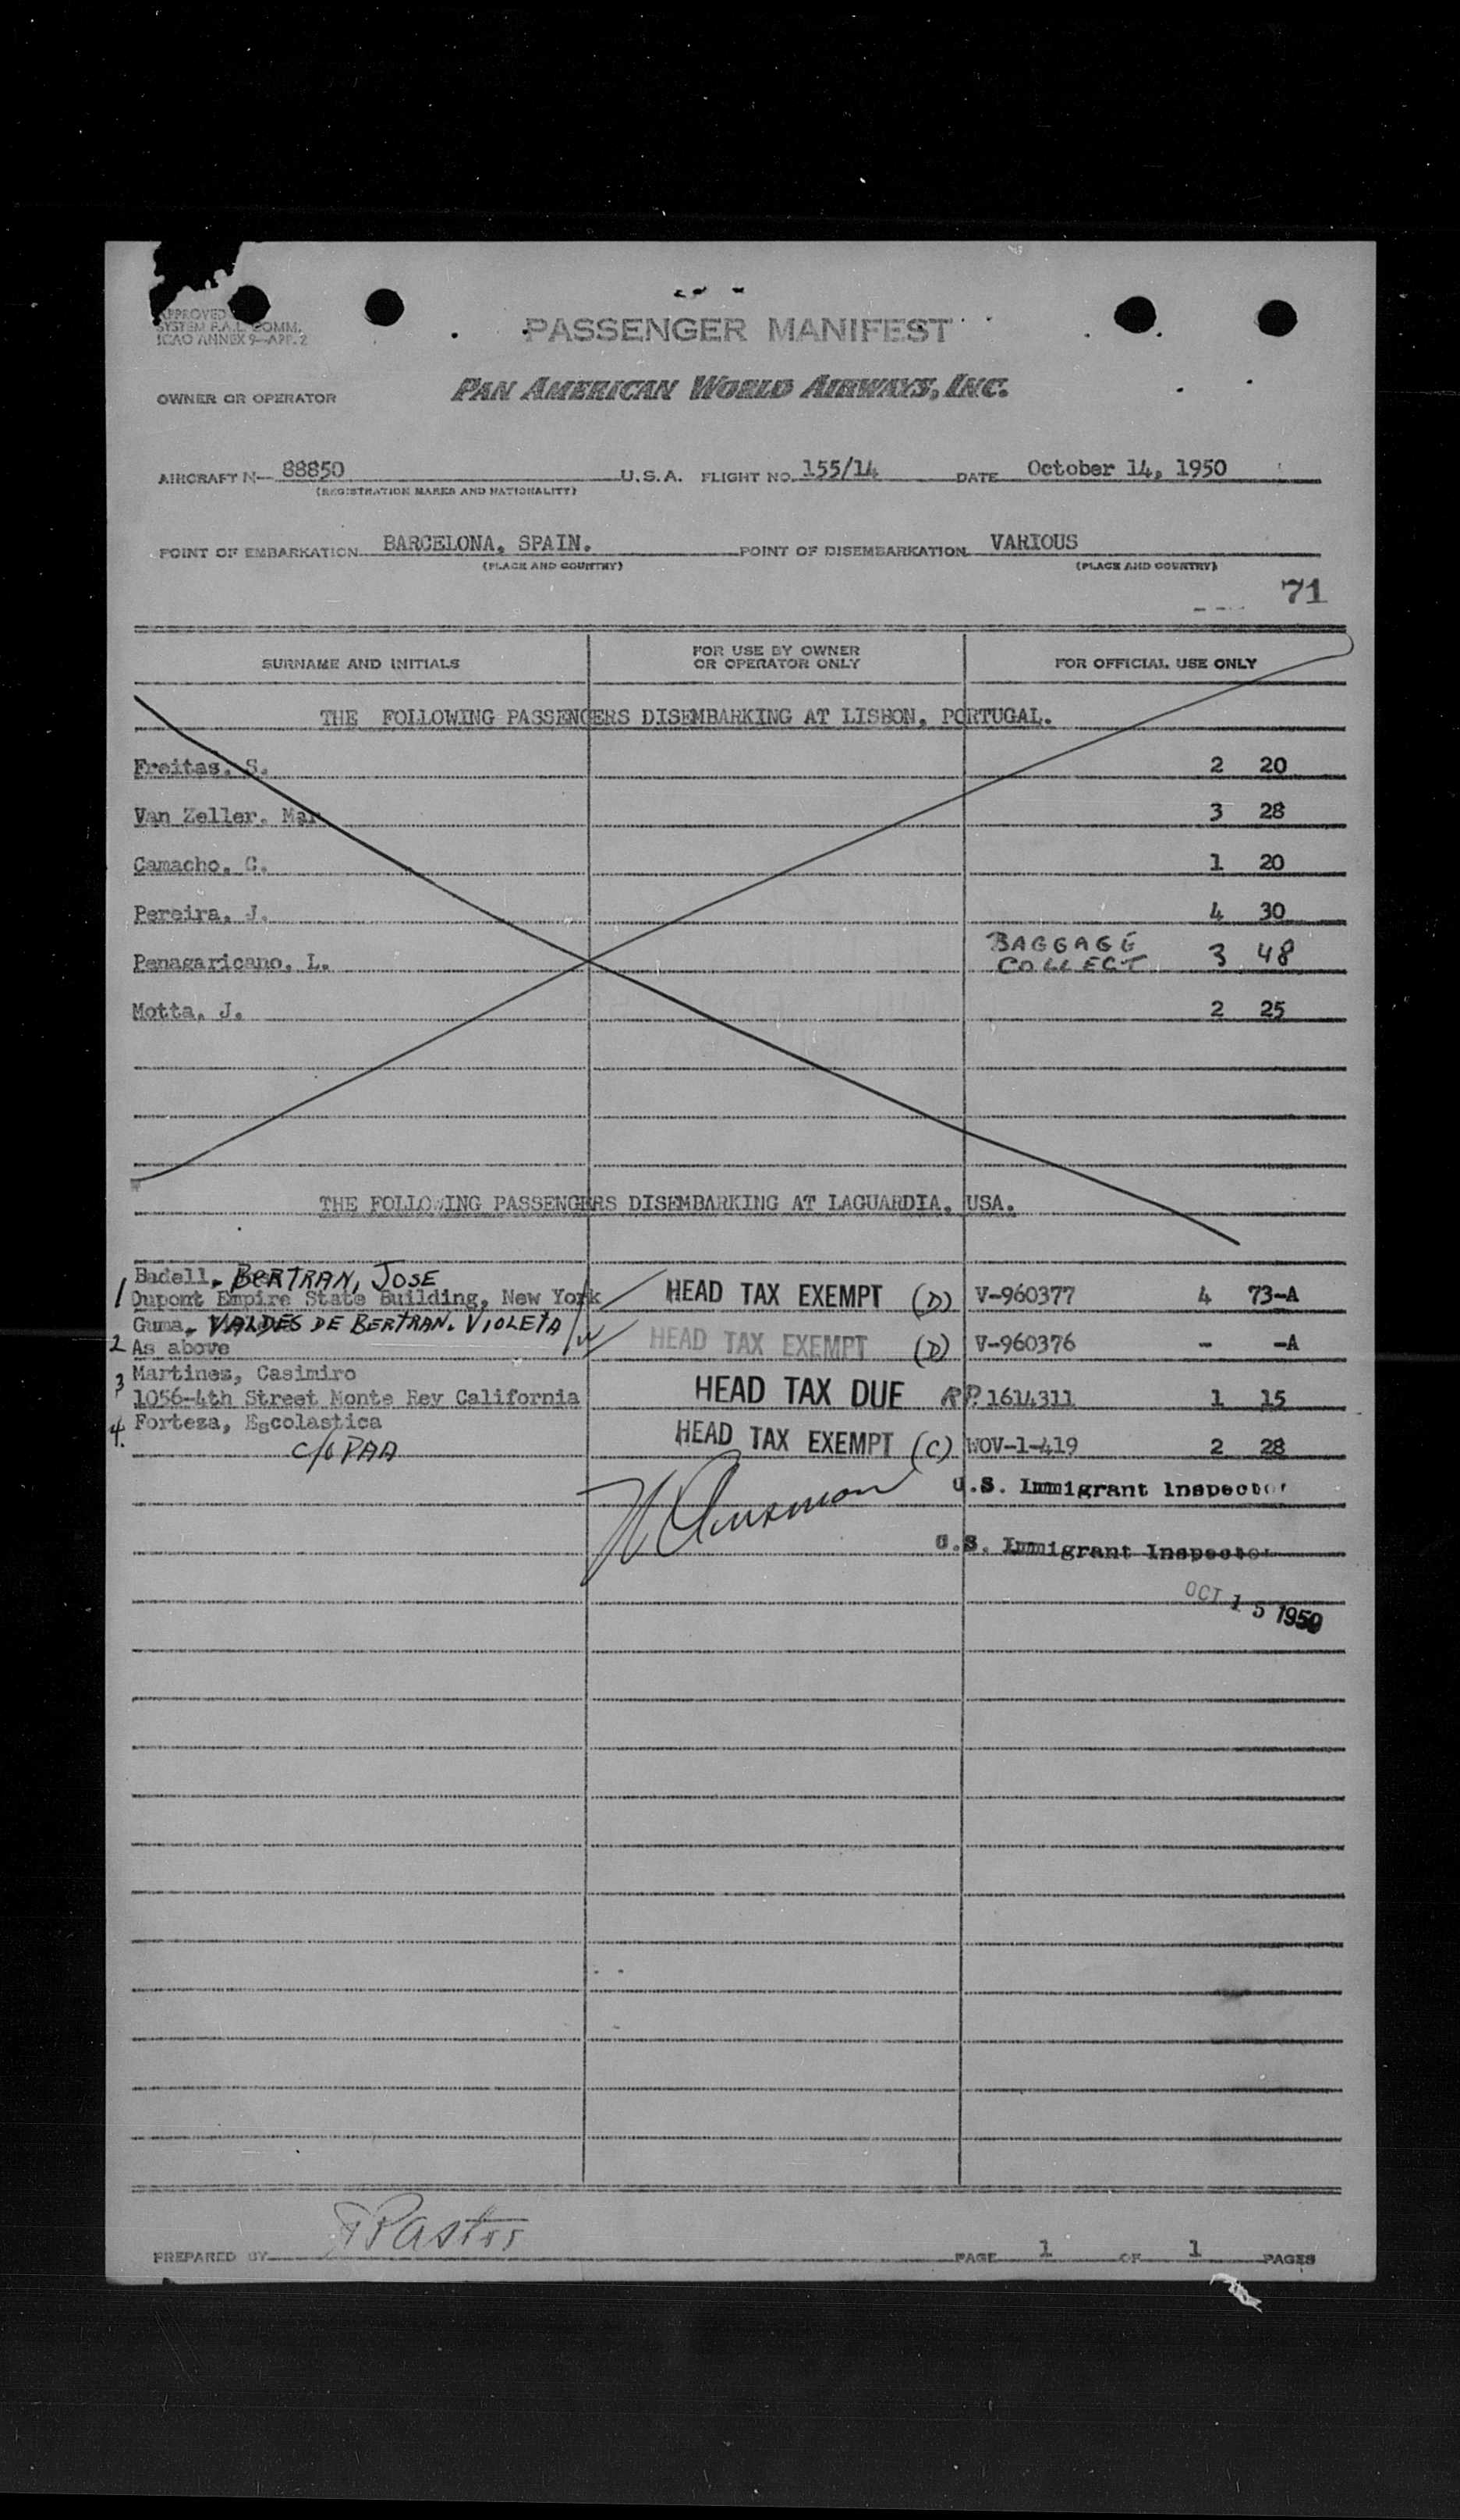 APPROVED
SYSTEM F.A.L. COMM.
ICAO ANNEX 9—APP. 2
PASSENGER MANIFEST
OWNER OR OPERATOR PAN AMERICAN WORLD AIRWAYS, INC.
AIRCRAFT N— 88850 U.S.A. FLIGHT NO. 155/14 DATE October 14, 1950
(REGISTRATION MARKS AND NATIONALITY)
POINT OF EMBARKATION BARCELONA, SPAIN. POINT OF DISEMBARKATION VARIOUS
(PLACE AND COUNTRY) (PLACE AND COUNTRY)
71
SURNAME AND INITIALS FOR USE BY OWNER OR OPERATOR ONLY FOR OFFICIAL USE ONLY
THE FOLLOWING PASSENGERS DISEMBARKING AT LISBON, PORTUGAL.
Freitas, S. 2 20
Van Zeller, Mar 3 28
Camacho, C. 1 20
Pereira, J. 4 30
Penagaricano, L. BAGGAGE COLLECT 3 48
Motta, J. 2 25
THE FOLLOWING PASSENGERS DISEMBARKING AT LAGUARDIA, USA.
Badell, BERTRAN, JOSE
1 Dupont Empire State Building, New York HEAD TAX EXEMPT (D) V-960377 4 73-A
Guma, VALDES DE BERTRAN, VIOLETA
2 As above HEAD TAX EXEMPT (D) V-960376 - -A
3 Martinez, Casimiro
1056-4th Street Monte Rey California HEAD TAX DUE RP. 1614311 1 15
4. Forteza, Escolastica
c/o PAA HEAD TAX EXEMPT (C) WOV-1-419 2 28
U.S. Immigrant Inspector
U.S. Immigrant Inspector
OCT 15 1950
PREPARED BY PAGE 1 OF 1 PAGES